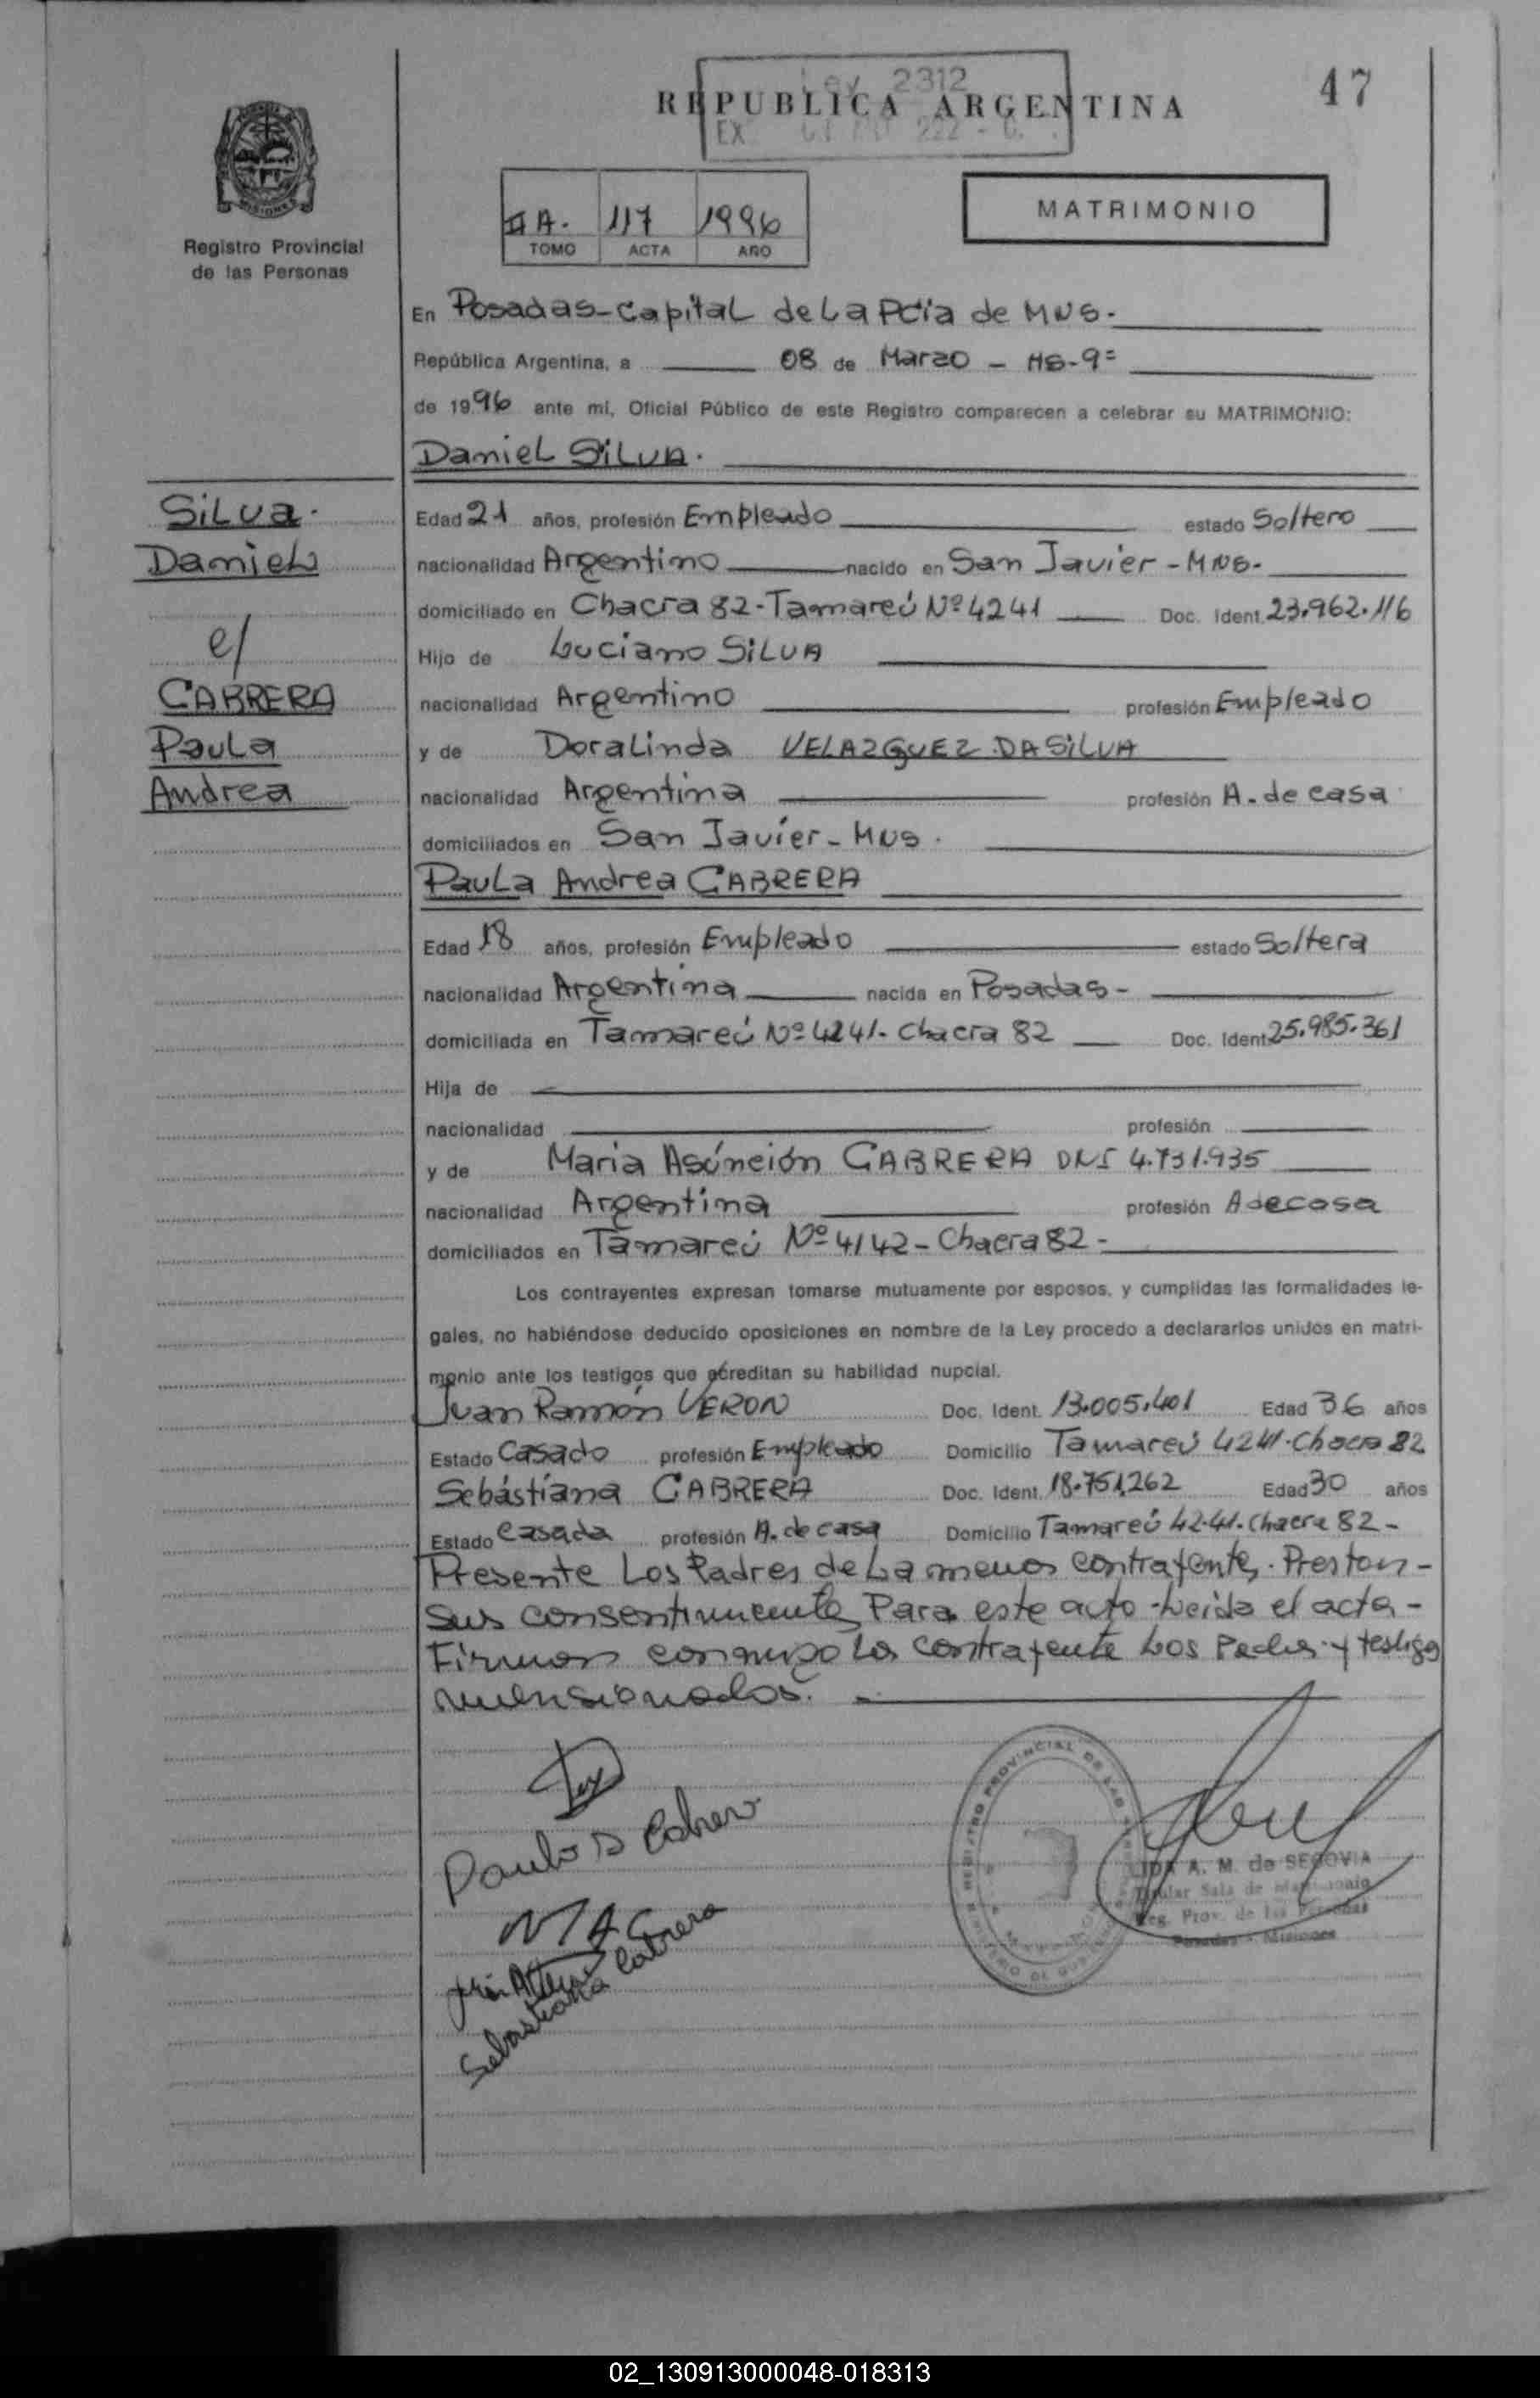 Ley 2312
REPUBLICA ARGENTINA
47
EX
MATRIMONIO
A. 117 1996
TOMO ACTA AÑO
MISIONES
Registro Provincial
de las Personas
En Posadas-Capital de La Pcia de MNS.
República Argentina, a 08 de Marzo - HS-9=
de 1996 ante mi, Oficial Público de este Registro comparecen a celebrar su MATRIMONIO:
Daniel SILVA.
Silva.
Daniel
c/
CABRERA
Paula
Andrea
Edad 21 años, profesión Empleado estado Soltero
nacionalidad Argentino nacido en San Javier - MNS-
domiciliado en Chacra 82-Tamareú Nº 4241 Doc. Ident. 23.962.116
Hijo de Luciano SILVA
nacionalidad Argentino profesión Empleado
y de Doralinda VELAZQUEZ DASILVA
nacionalidad Argentina profesión A. de casa
domiciliados en San Javier - MNS.
Paula Andrea CABRERA
Edad 18 años, profesión Empleado estado Soltera
nacionalidad Argentina nacida en Posadas-
domiciliada en Tamareú Nº 4241- Chacra 82 Doc. Ident. 25.985.361
Hija de
nacionalidad profesión
y de Maria Asúnción CABRERA DNI 4.731.935
nacionalidad Argentina profesión A de casa
domiciliados en Tamareú Nº 4142 - Chacra 82 -
Los contrayentes expresan tomarse mutuamente por esposos, y cumplidas las formalidades le-
gales, no habiéndose deducido oposiciones en nombre de la Ley procedo a declararlos unidos en matri-
monio ante los testigos que acreditan su habilidad nupcial.
Juan Ramón VERON Doc. Ident. 13.005.401 Edad 36 años
Estado Casado profesión Empleado Domicilio Tamareú 4241-Chacra 82
Sebástiana CABRERA Doc. Ident. 18.751.262 Edad 30 años
Estado Casada profesión A. de casa Domicilio Tamareú 4241. Chacra 82-
Presente Los Padres de La menor contrayente, Prestan-
sus consentimiento Para este acto. Leida el acta-
Firman conmigo los contrayente Los Padres y testigo
mensionados.
Sebastiana Cabrera
REGISTRO PROVINCIAL DE LAS
A. M. de SEGOVIA
Titular Sala de Matrimonio
Reg. Prov. de las Personas
Posadas - Misiones
02_130913000048-018313